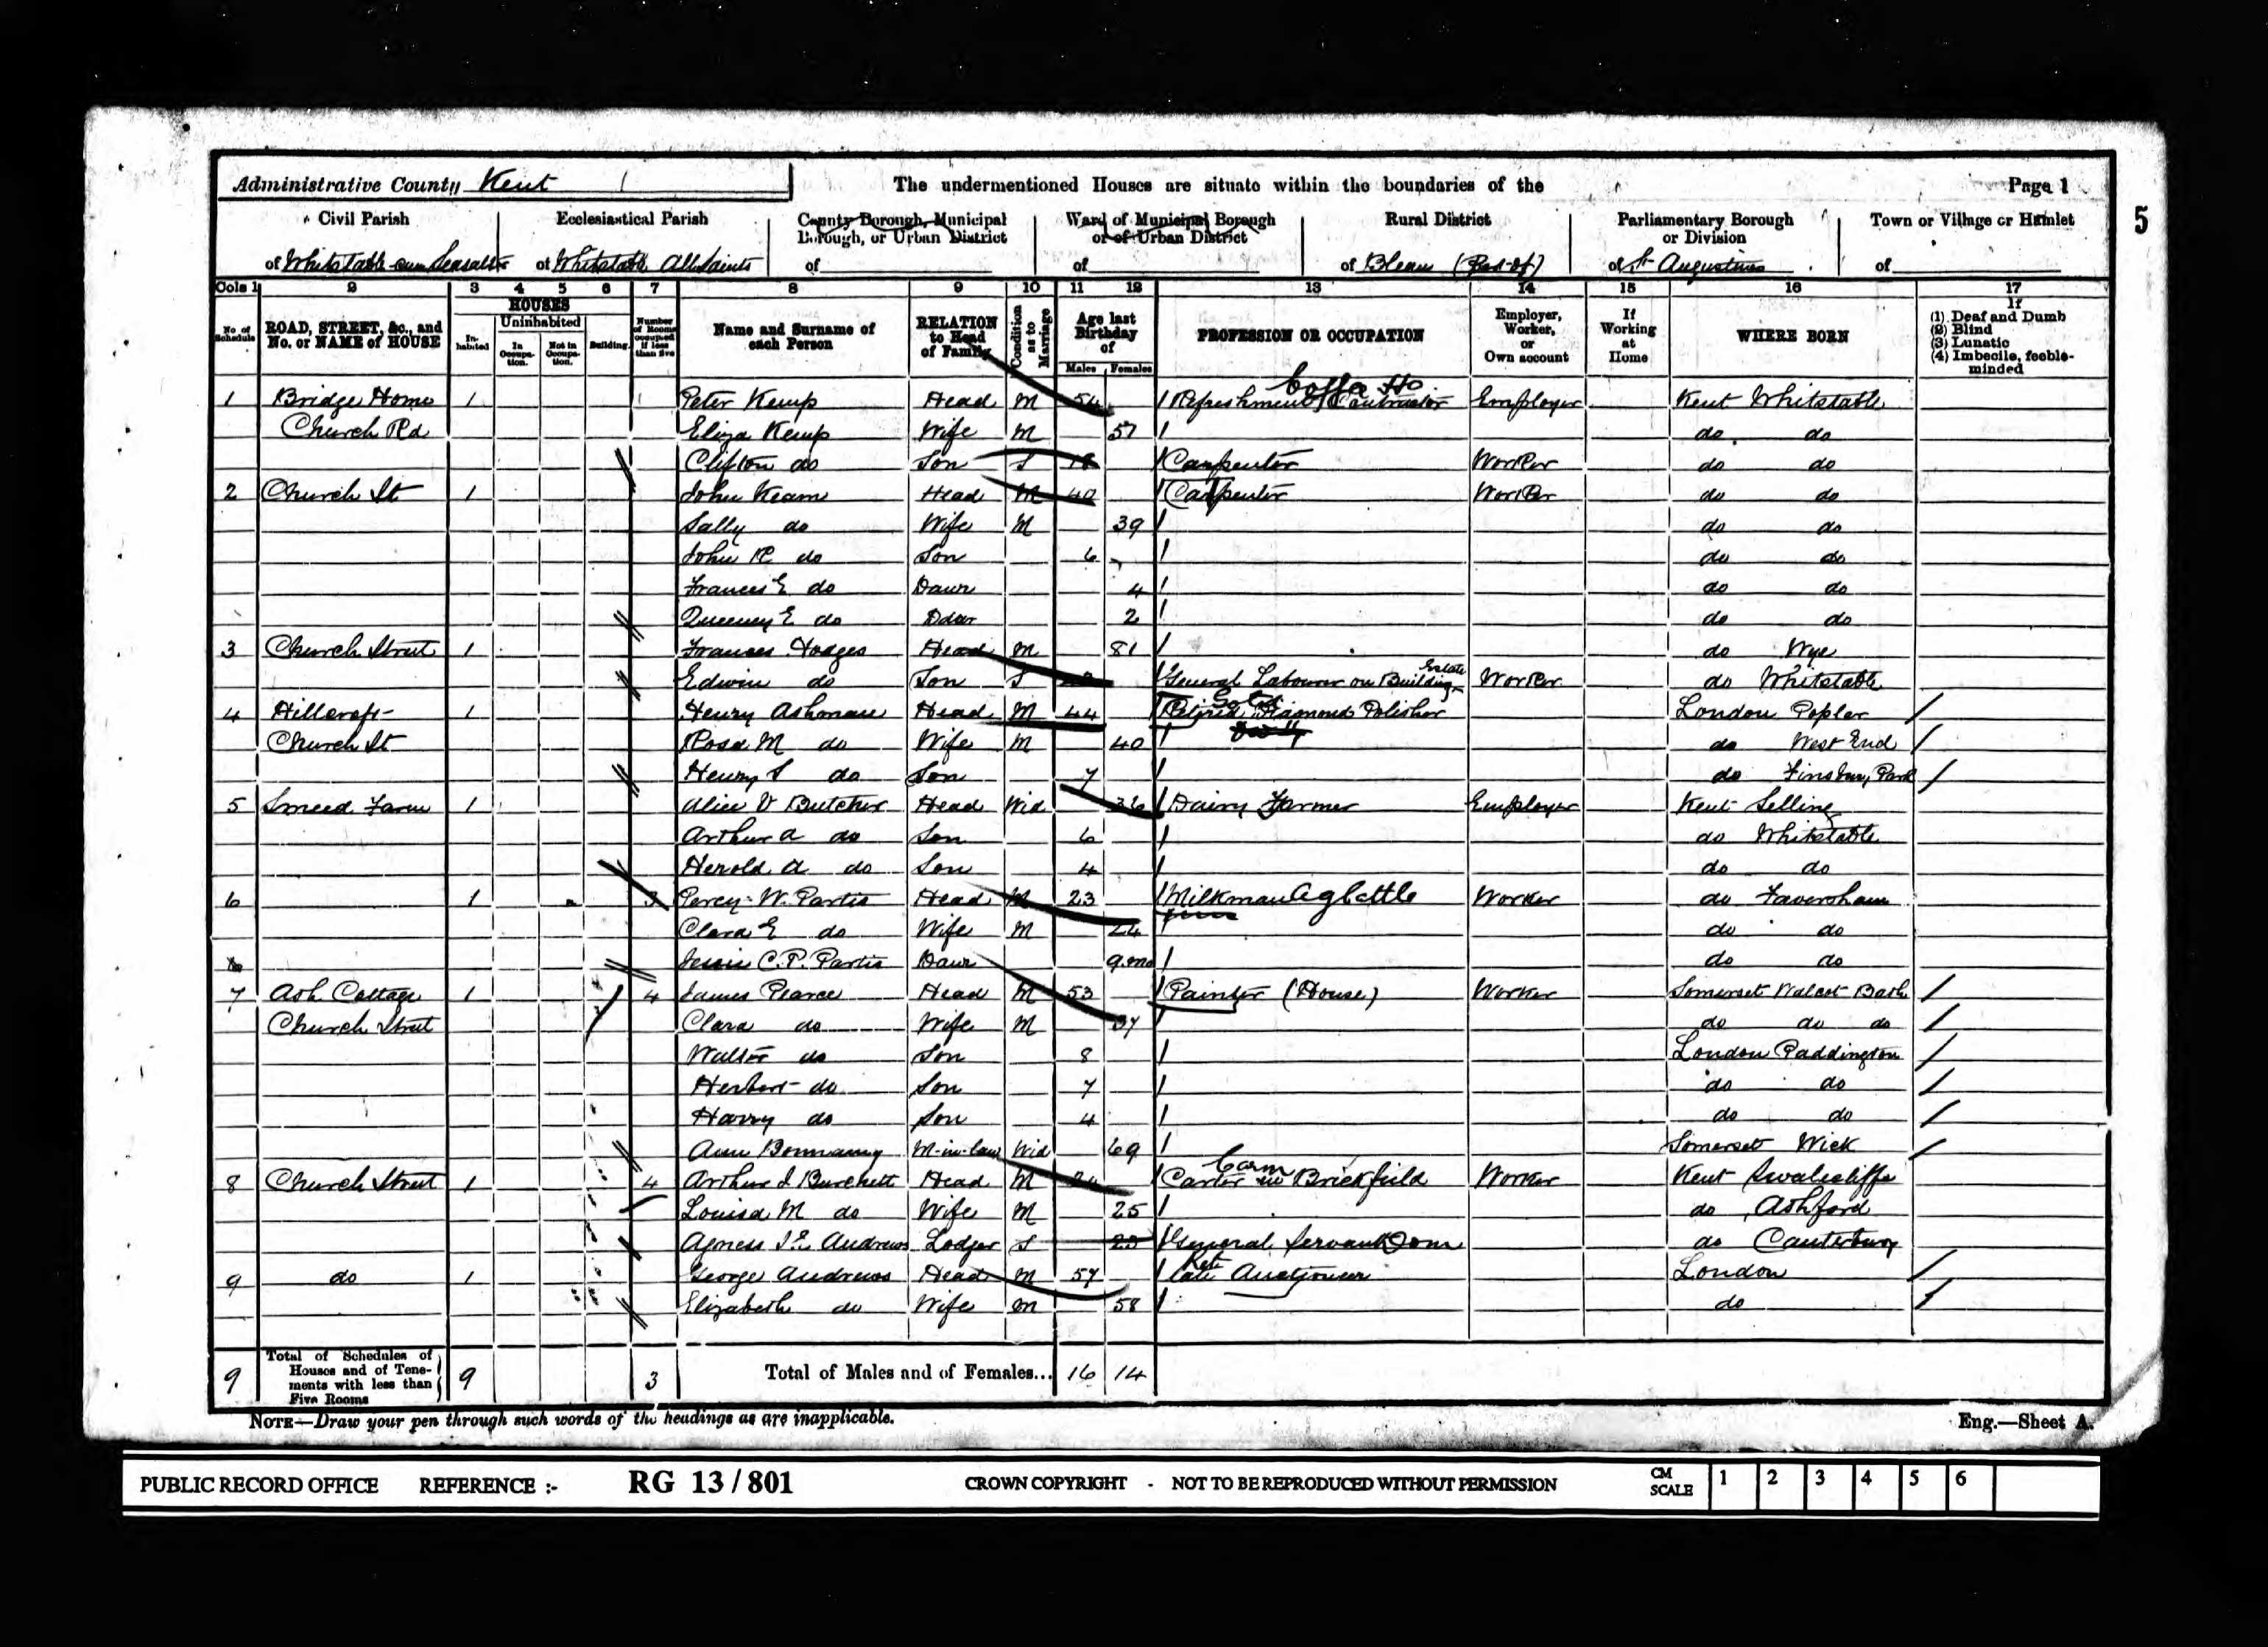 Administrative County Kent The undermentioned Houses are situate within the boundaries of the Page 1
5
Civil Parish Ecclesiastical Parish County Borough, Municipal Borough, or Urban District Ward of Municipal Borough or of Urban District Rural District Parliamentary Borough or Division Town or Village or Hamlet
of Whitstable-cum-Seasalter of Whitstable All Saints of of of Blean (Part of) of St Augustines of
Cols 1 2 3 4 5 6 7 8 9 10 11 12 13 14 15 16 17
No of Schedule ROAD, STREET, &c., and No. or NAME of HOUSE HOUSES Inhabited Uninhabited In Occupation. Not in Occupation. Building. Number of Rooms occupied if less than five Name and Surname of each Person RELATION to Head of Family Condition as to Marriage Age last Birthday of Males Females PROFESSION OR OCCUPATION Employer, Worker, or Own account If Working at Home WHERE BORN If (1) Deaf and Dumb (2) Blind (3) Lunatic (4) Imbecile, feeble-minded
Coffee Ho
1 Bridge Home 1 Peter Kemp Head M 54 Refreshment Contractor Employer Kent Whitstable
Church Rd Eliza Kemp Wife M 57 do do
Clifton do Son S Carpenter Worker do do
2 Church St 1 John Keam Head M 40 Carpenter Worker do do
Sally do Wife M 39 do do
John R do Son 6 do do
Frances E do Daur 4 do do
Queeney E do Daur 2 do do
3 Church Street 1 Frances Hodges Head M 81 do Wye
Estate
Edwin do Son S General Labourer on Building Worker do Whitstable
4 Hillcroft 1 Henry Ashman Head M 44 Retired Diamond Polisher London Poplar
Church St Rosa M do Wife M 40 do West End
Henry S do Son 7 do Finsbury Park
5 Smeed Farm 1 Alice V Butcher Head Wid 36 Dairy Farmer Employer Kent Selling
Arthur A do Son 6 do Whitstable
Herold A do Son 4 do do
6 1 3 Percy W. Partis Head M 23 Milkman Ag Cattle Worker do Faversham
Clara E do Wife M 24 do do
Jessie C. P. Partis Daur 9 mo do do
7 Ash Cottage 1 4 James Pearce Head M 53 Painter (House) Worker Somerset Walcot Bath
Church Street Clara do Wife M 37 do do do
Walter do Son 8 London Paddington
Herbert do Son 7 do do
Harry do Son 4 do do
Ann Bonnamy M-in-law Wid 69 Somerset Wick
Carm
8 Church Street 1 4 Arthur J Burchett Head M Carter in Brickfield Worker Kent Swalecliffe
Louisa M do Wife M 25 do Ashford
Agness J. E. Andrews Lodger S 23 General Servant Dom do Canterbury
Ret
9 do 1 George Andrews Head M 57 late Auctioneer London
Elizabeth do Wife M 58 do
9 Total of Schedules of Houses and of Tenements with less than Five Rooms 9 3 Total of Males and of Females... 16 14
NOTE—Draw your pen through such words of the headings as are inapplicable. Eng.—Sheet A.
PUBLIC RECORD OFFICE REFERENCE :- RG 13 / 801 CROWN COPYRIGHT - NOT TO BE REPRODUCED WITHOUT PERMISSION CM SCALE 1 2 3 4 5 6